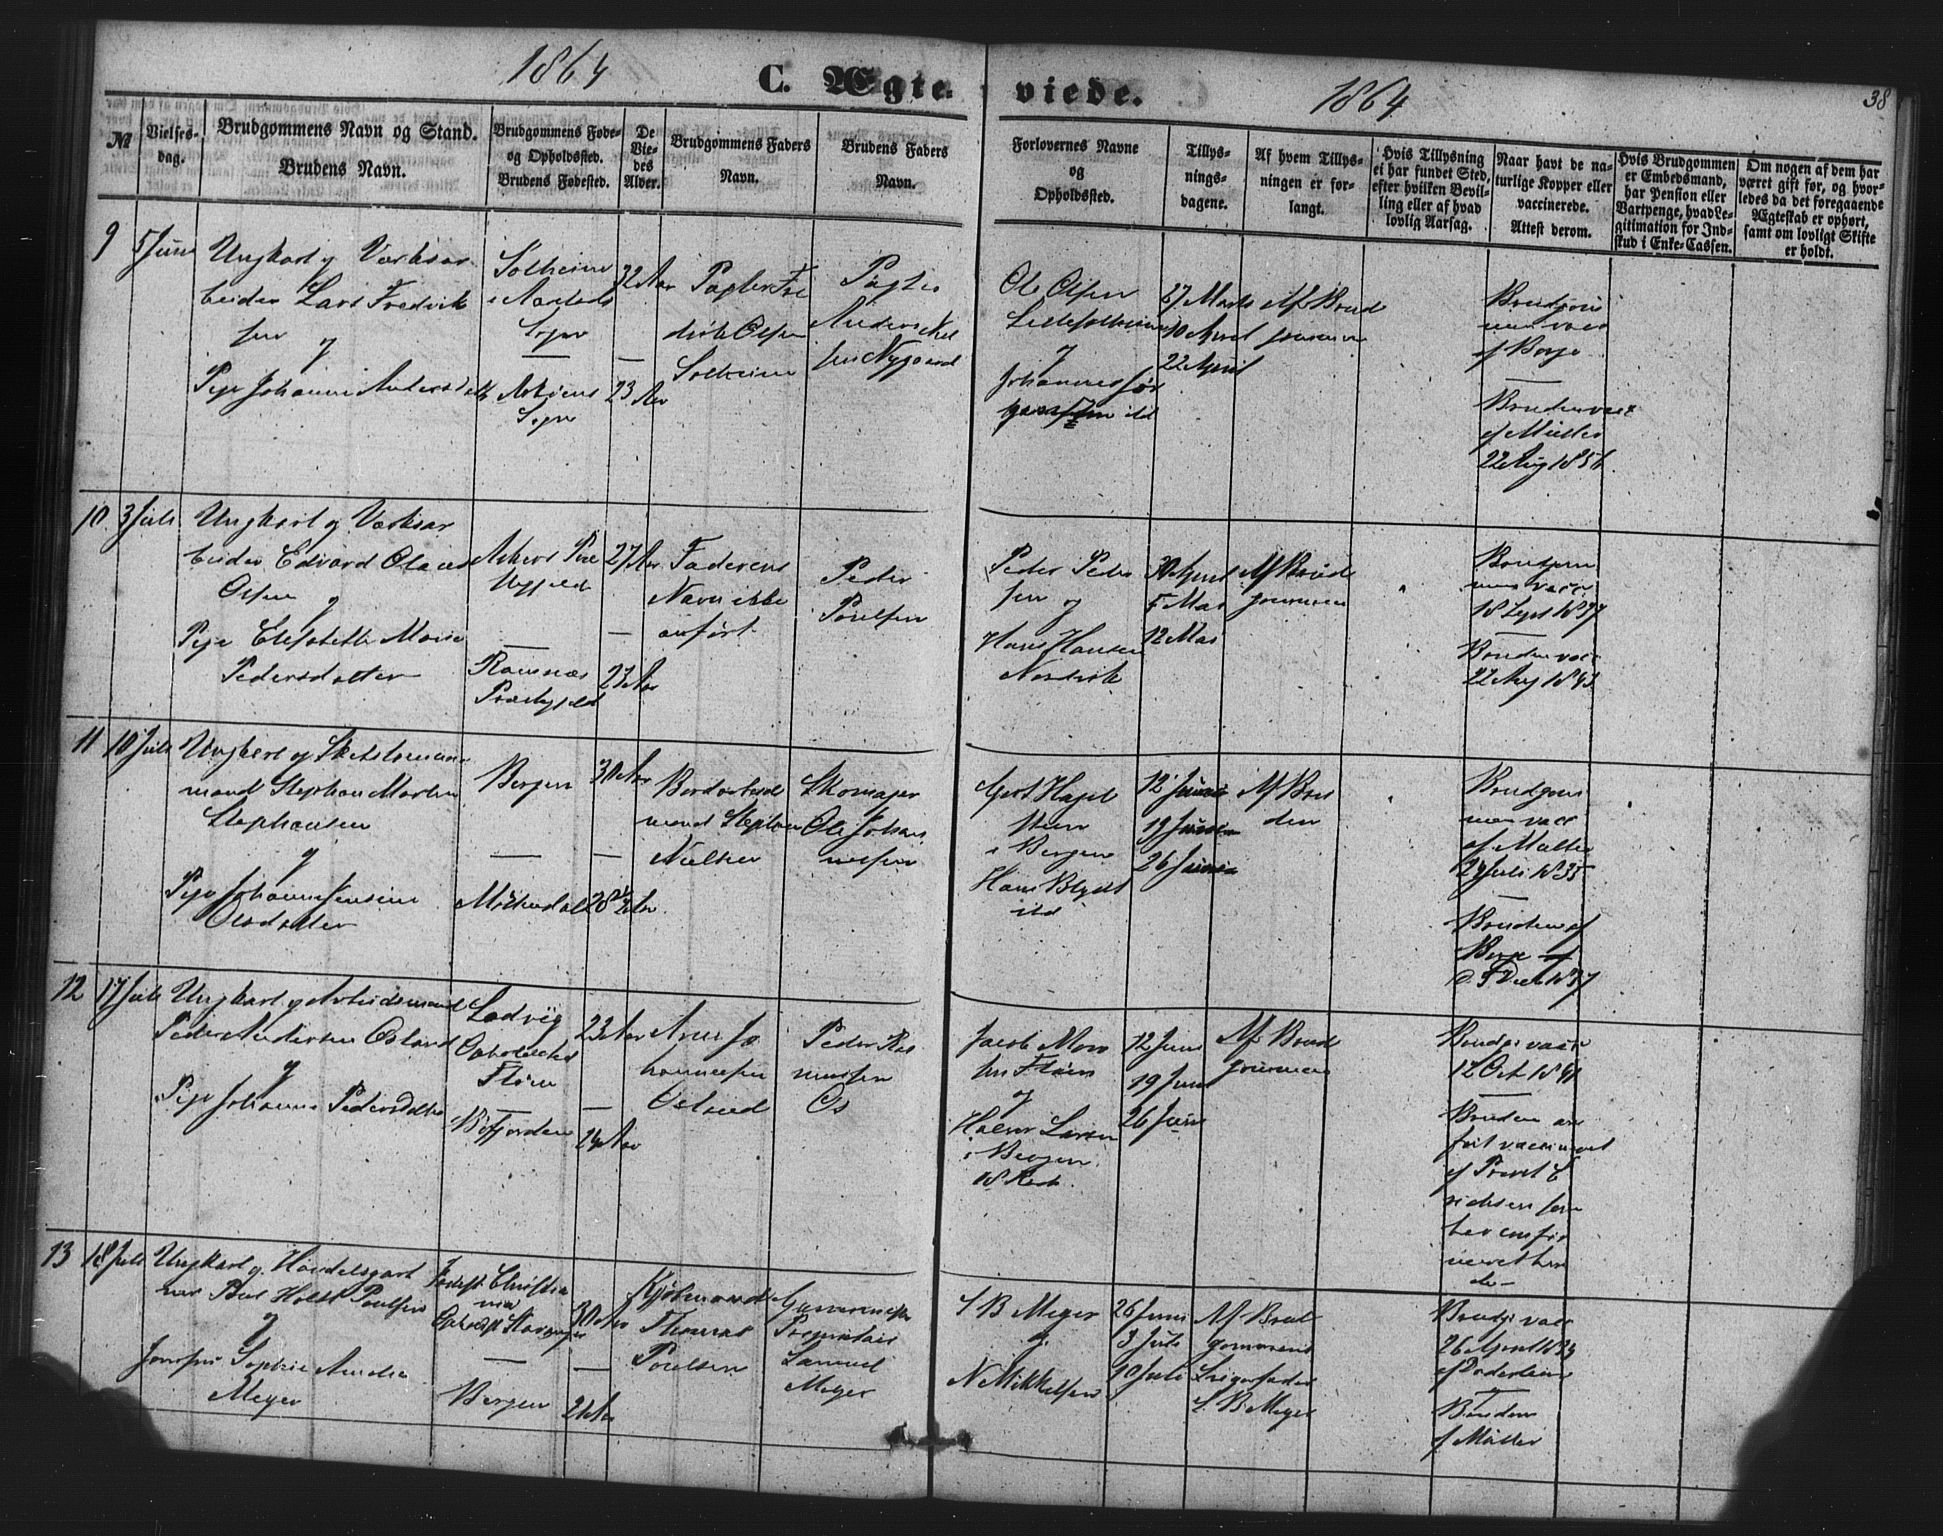 1864
C. Ægte-
viede.
1864
38
№
Vielses-
dag.
Brudgommens Navn og Stand.
Brudens Navn.
Brudgommens Føde-
og Opholdssted.
Brudens Fødested.
De
Vie-
des
Alder.
Brudgommens Faders
Navn.
Brudens Faders
Navn.
Forlovernes Navne
og
Opholdssted.
Tillys-
nings-
dagene.
Af hvem Tillys-
ningen er for-
langt.
Hvis Tillysning
ei har fundet Sted,
efter hvilken Bevil-
ling eller af hvad
lovlig Aarsag.
Naar havt de na-
turlige Kopper eller
vaccinerede.
Attest derom.
Hvis Brudgommen
er Embedsmand,
har Pension eller
Vartpenge, hvad Le-
gitimation for Ind-
skud i Enke-Cassen.
Om nogen af dem har
været gift før, og hvor-
ledes da det foregaaende
Ægteskab er ophørt,
samt om lovligt Skifte
er holdt.
9
5 Juni
Ungkarl og Værksar
beider Lars Fredrik
sen og
Pige Johanne Andersd
Solheim
i Aarstads
Sogn
Askøens
Sogn
32 Aar
23 Aar
Fre
drik Olsen
Solheim
Anders
sen Nygaard
Ole Olsen
Lillesolheim
og
Johannes Jør
gensen ibd
27 Marts
10 April
22 April
Af Brud
gommen
Brudgom
men vacc
af Borge
Bruden vacc
af Müller
22 Aug 1856.
10
3 Juli
Ungkarl og Værksar
beider Edvard Olaus
Olsen og
Pige Elisabeth Marie
Pedersdatter
Askers Præ
stegjeld
Ramnæs
Præstegjeld
27 Aar
23 Aar
Faderens
Navn ikke
anført
Peder
Poulsen
Peder Peder
sen og
Hans Hansen
Nordvik
30 April
5 Mai
12 Mai
Af Brud
gommen
Brudgom
men vacc
18 Sept 1837
Bruden vacc
22 Aug 1843
11
10 Juli
Ungkarl og
mand Stephan Morten
Stephansen
og
Pige Johanne Jensine
Olsdatter
Bergen
Møhlendal
30 Aar
26½ Aar
mand Stephan
Nielsen
Skomager
Ole Johan
nesen
Gert Hagel
steen
i Bergen
Hans Blydt
ibd
12 Juni
19 Juni
26 Juni
Af Bru
den
Brudgom
men vacc
af Müller
24 Juli 1835
Bruden af
d. 5 Dec 1837
12
17 Juli
Ungkarl og Arbeidsmand
Peder Andersen Østand
og
Pige Johanne Pedersdatter
Ladvig
Opholdssted
Florø
23 Aar
24 Aar
Arne Jo
hannesen
Peder Ras
mussen
Os
Jacob Mon
sen Florø
og
Halvor Larsen
i Bergen
18 Rode.
12 Juni
19 Juni
26 Juni
Af Brud
gommen
Brudg vacc
12 Oct 1841
Bruden an
ført vaccineret
af Provst E
richsen som
har confir
meret hen
de
13
18 Juli
Ungkarl og Handelsgart
ner Poul Holst Poulsen
og
Jomfru Sophie Amalia
Meyer
Fødest. Christia
nia
Opholdst Stavanger
Bergen
30 Aar
21 Aar
Kjøbmand
Thomas
Poulsen
Samuel
Meyer
S B Meyer
og
N Mikkelsen
26 Juni
3 Juli
10 Juli
Af Brud
gommens
Svigerfader
S. B Meyer
Brudg vacc
26 April 1833
af Døderlein
Bruden
af Müller